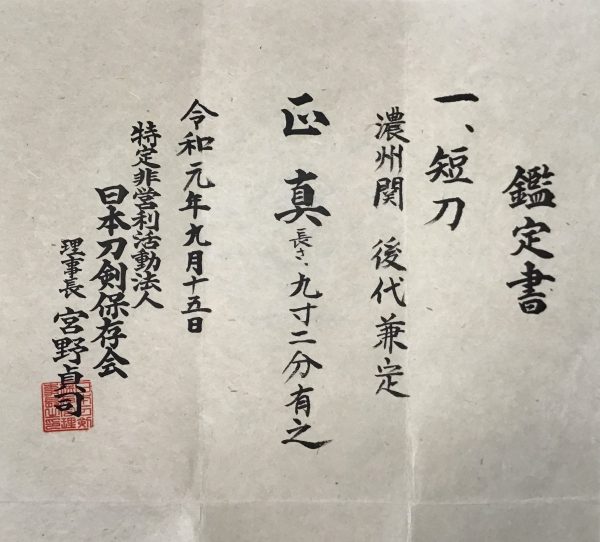 鑑定書
一、短刀
濃州関 後代兼定
正真
長さ、九寸二分有之
令和元年九月十五日
特定非営利活動法人
日本刀剣保存会
理事長 宮野貞司